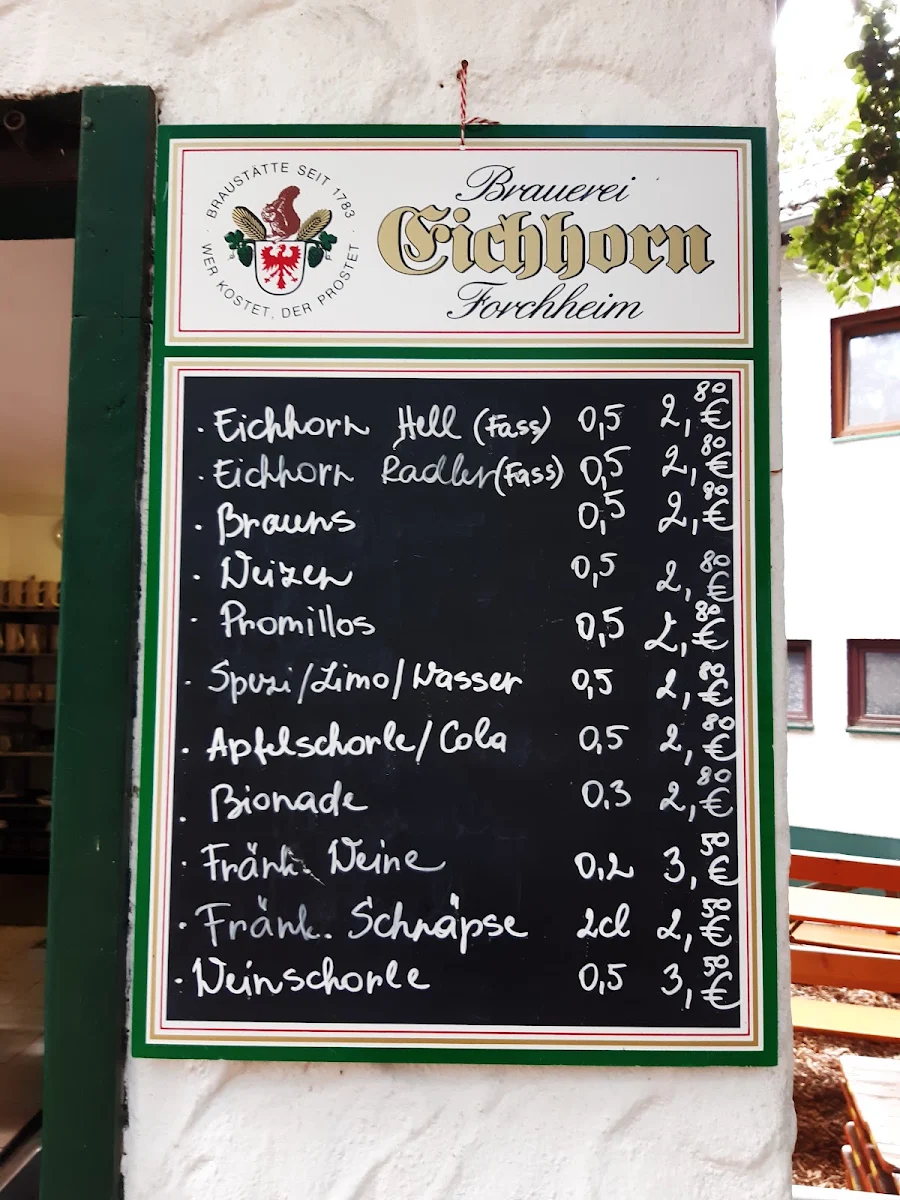 BRAUSTÄTTE SEIT 1783
WER KOSTET, DER PROSTET
Brauerei
Eichhorn
Forchheim
· Eichhorn Hell (Fass) 0,5 2,80 €
· Eichhorn Radler (Fass) 0,5 2,80 €
· Brauns 0,5 2,80 €
· Weizen 0,5 2,80 €
· Promillos 0,5 2,80 €
· Spezi/Limo/Wasser 0,5 2,80 €
· Apfelschorle/Cola 0,5 2,80 €
· Bionade 0,3 2,80 €
· Fränk. Weine 0,2 3,50 €
· Fränk. Schnäpse 2cl 2,50 €
· Weinschorle 0,5 3,50 €